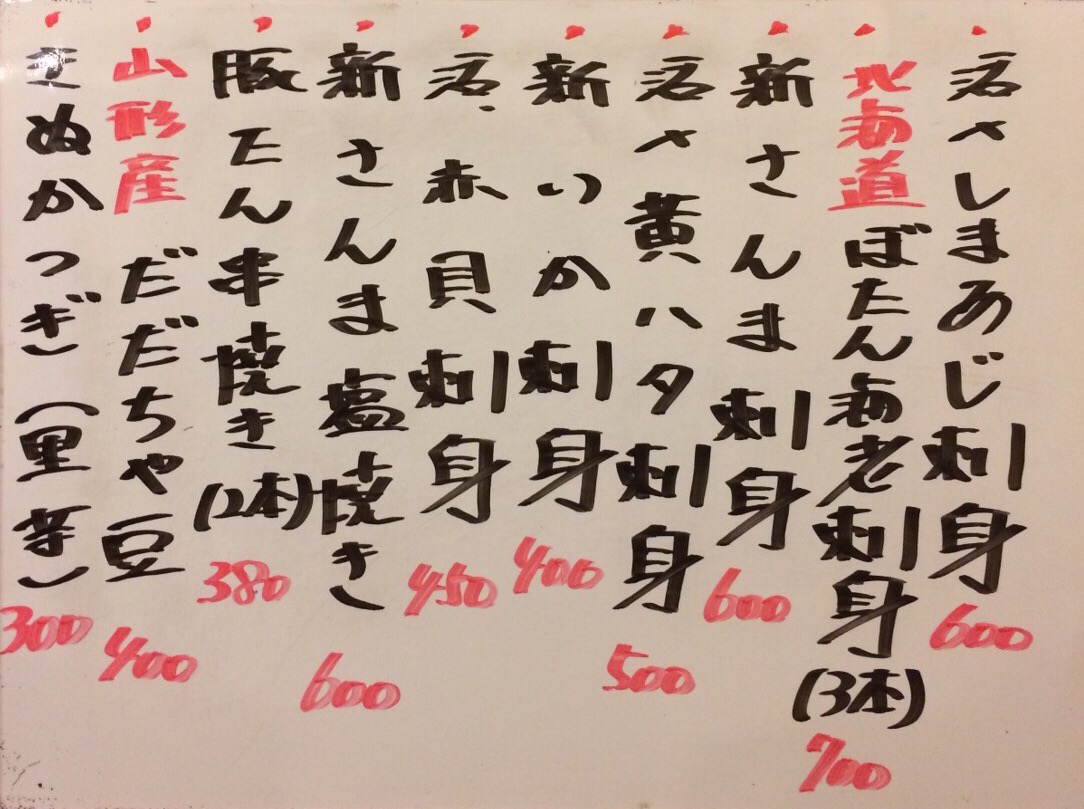 活〆しまあじ刺身 600
北海道ぼたん海老刺身(3本) 700
新さんま刺身 600
活〆黄ハタ刺身 500
新いか刺身 400
活、赤貝刺身 450
新さんま塩焼き 600
豚たん串焼き(2本) 380
山形産だだちゃ豆 400
きぬかつぎ(里芋) 300